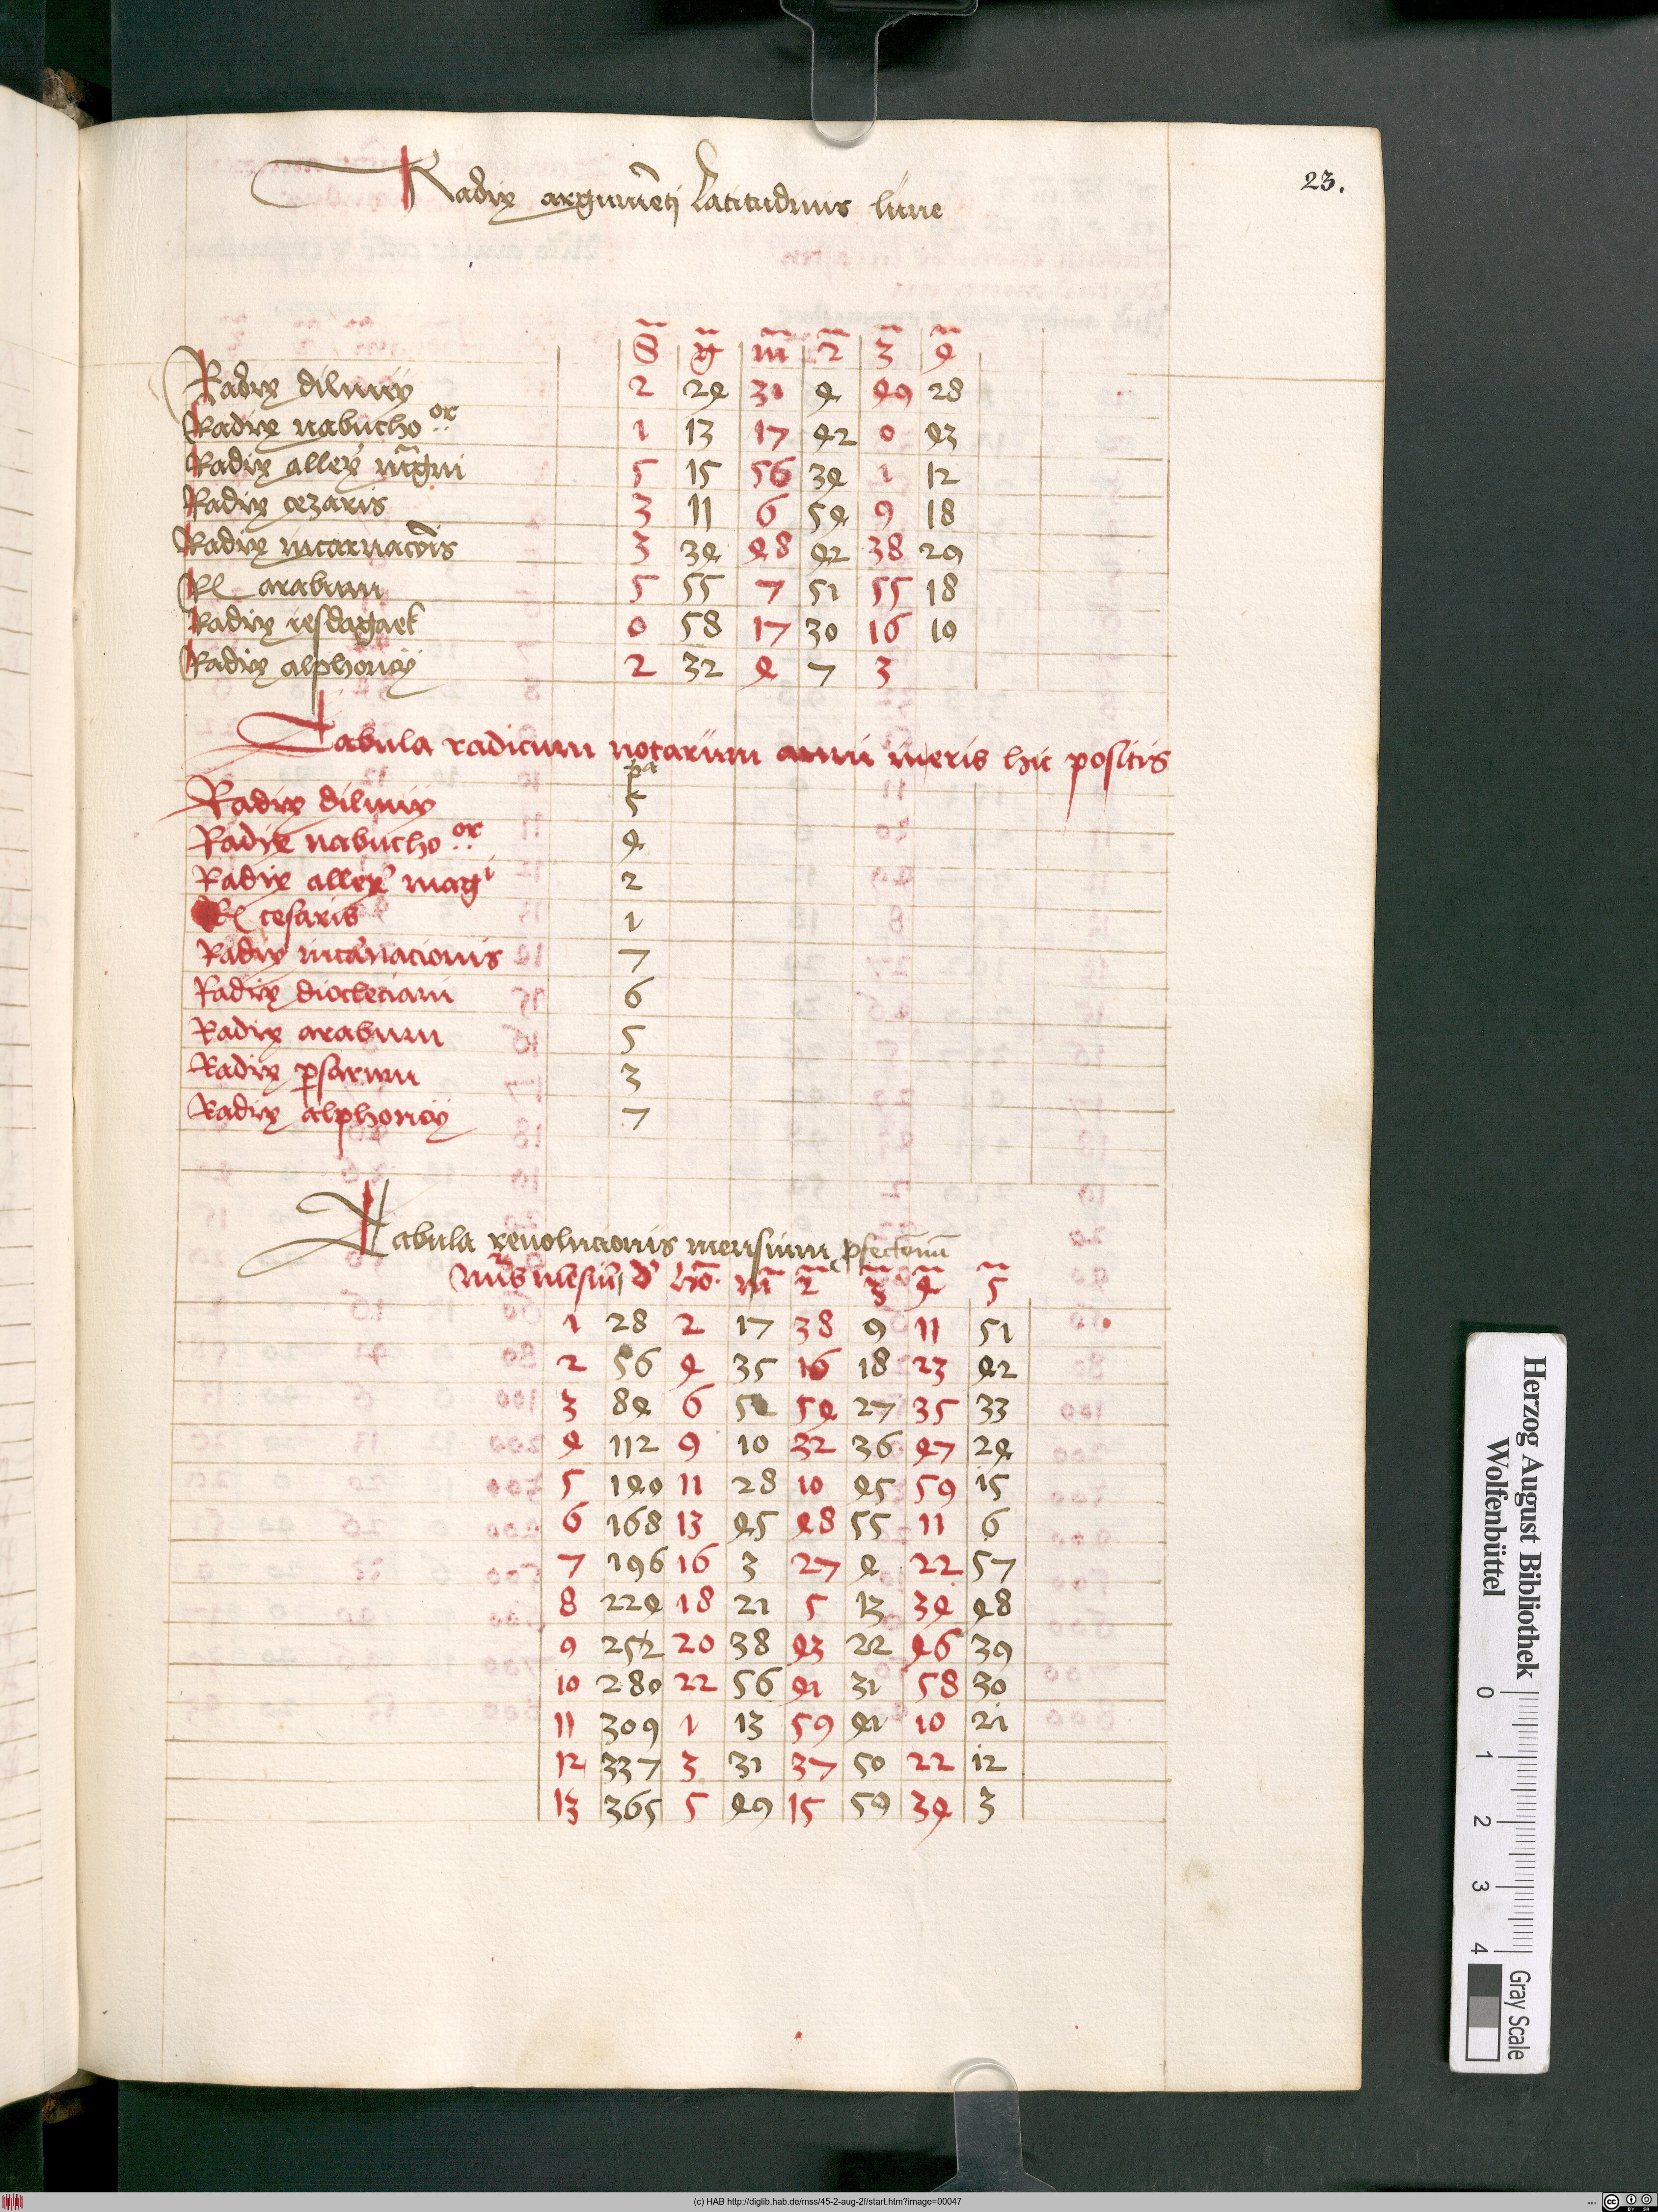 23.
Radix argumēti latitudinis lune
S g m 2 3 4
Radix diluvii 2 24 31 4 49 28
Radix nabucho or 1 13 17 42 0 43
Radix allex mgni 5 15 56 34 1 12
Radix cezaris 3 11 6 54 9 18
Radix incarnacōis 3 34 48 42 38 29
Rx arabum 5 55 7 51 55 18
Radix iesdagaet 0 58 17 30 16 10
Radix alphoncij 2 32 4 7 3
Tabula radicum notarum hic positis
pa
Radix diluvij 5
Radix nabucho or 4
Radix allex magi 2
Rx cesaris 1
Radix incarnacionis 7
Radix diocleciani 6
Radix arabum 5
Radix psarum 3
Radix alphoncij 7
Tabula revolucionis mensium pfectorum
nus mēsiū d ho m 2 3 4 5
1 28 2 17 38 9 11 51
2 56 4 35 16 18 23 42
3 84 6 52 54 27 35 33
4 112 9 10 32 36 47 24
5 140 11 28 10 45 59 15
6 168 13 45 48 55 11 6
7 196 16 3 27 4 22 57
8 224 18 21 5 13 34 48
9 252 20 38 43 22 46 39
10 280 22 56 41 31 58 30
11 309 1 13 59 41 10 21
12 337 3 31 37 50 22 12
13 365 5 49 15 59 34 3
Herzog August Bibliothek
Wolfenbüttel
0 1 2 3 4
Gray Scale
(c) HAB http://diglib.hab.de/mss/45-2-aug-2f/start.htm?image=00047